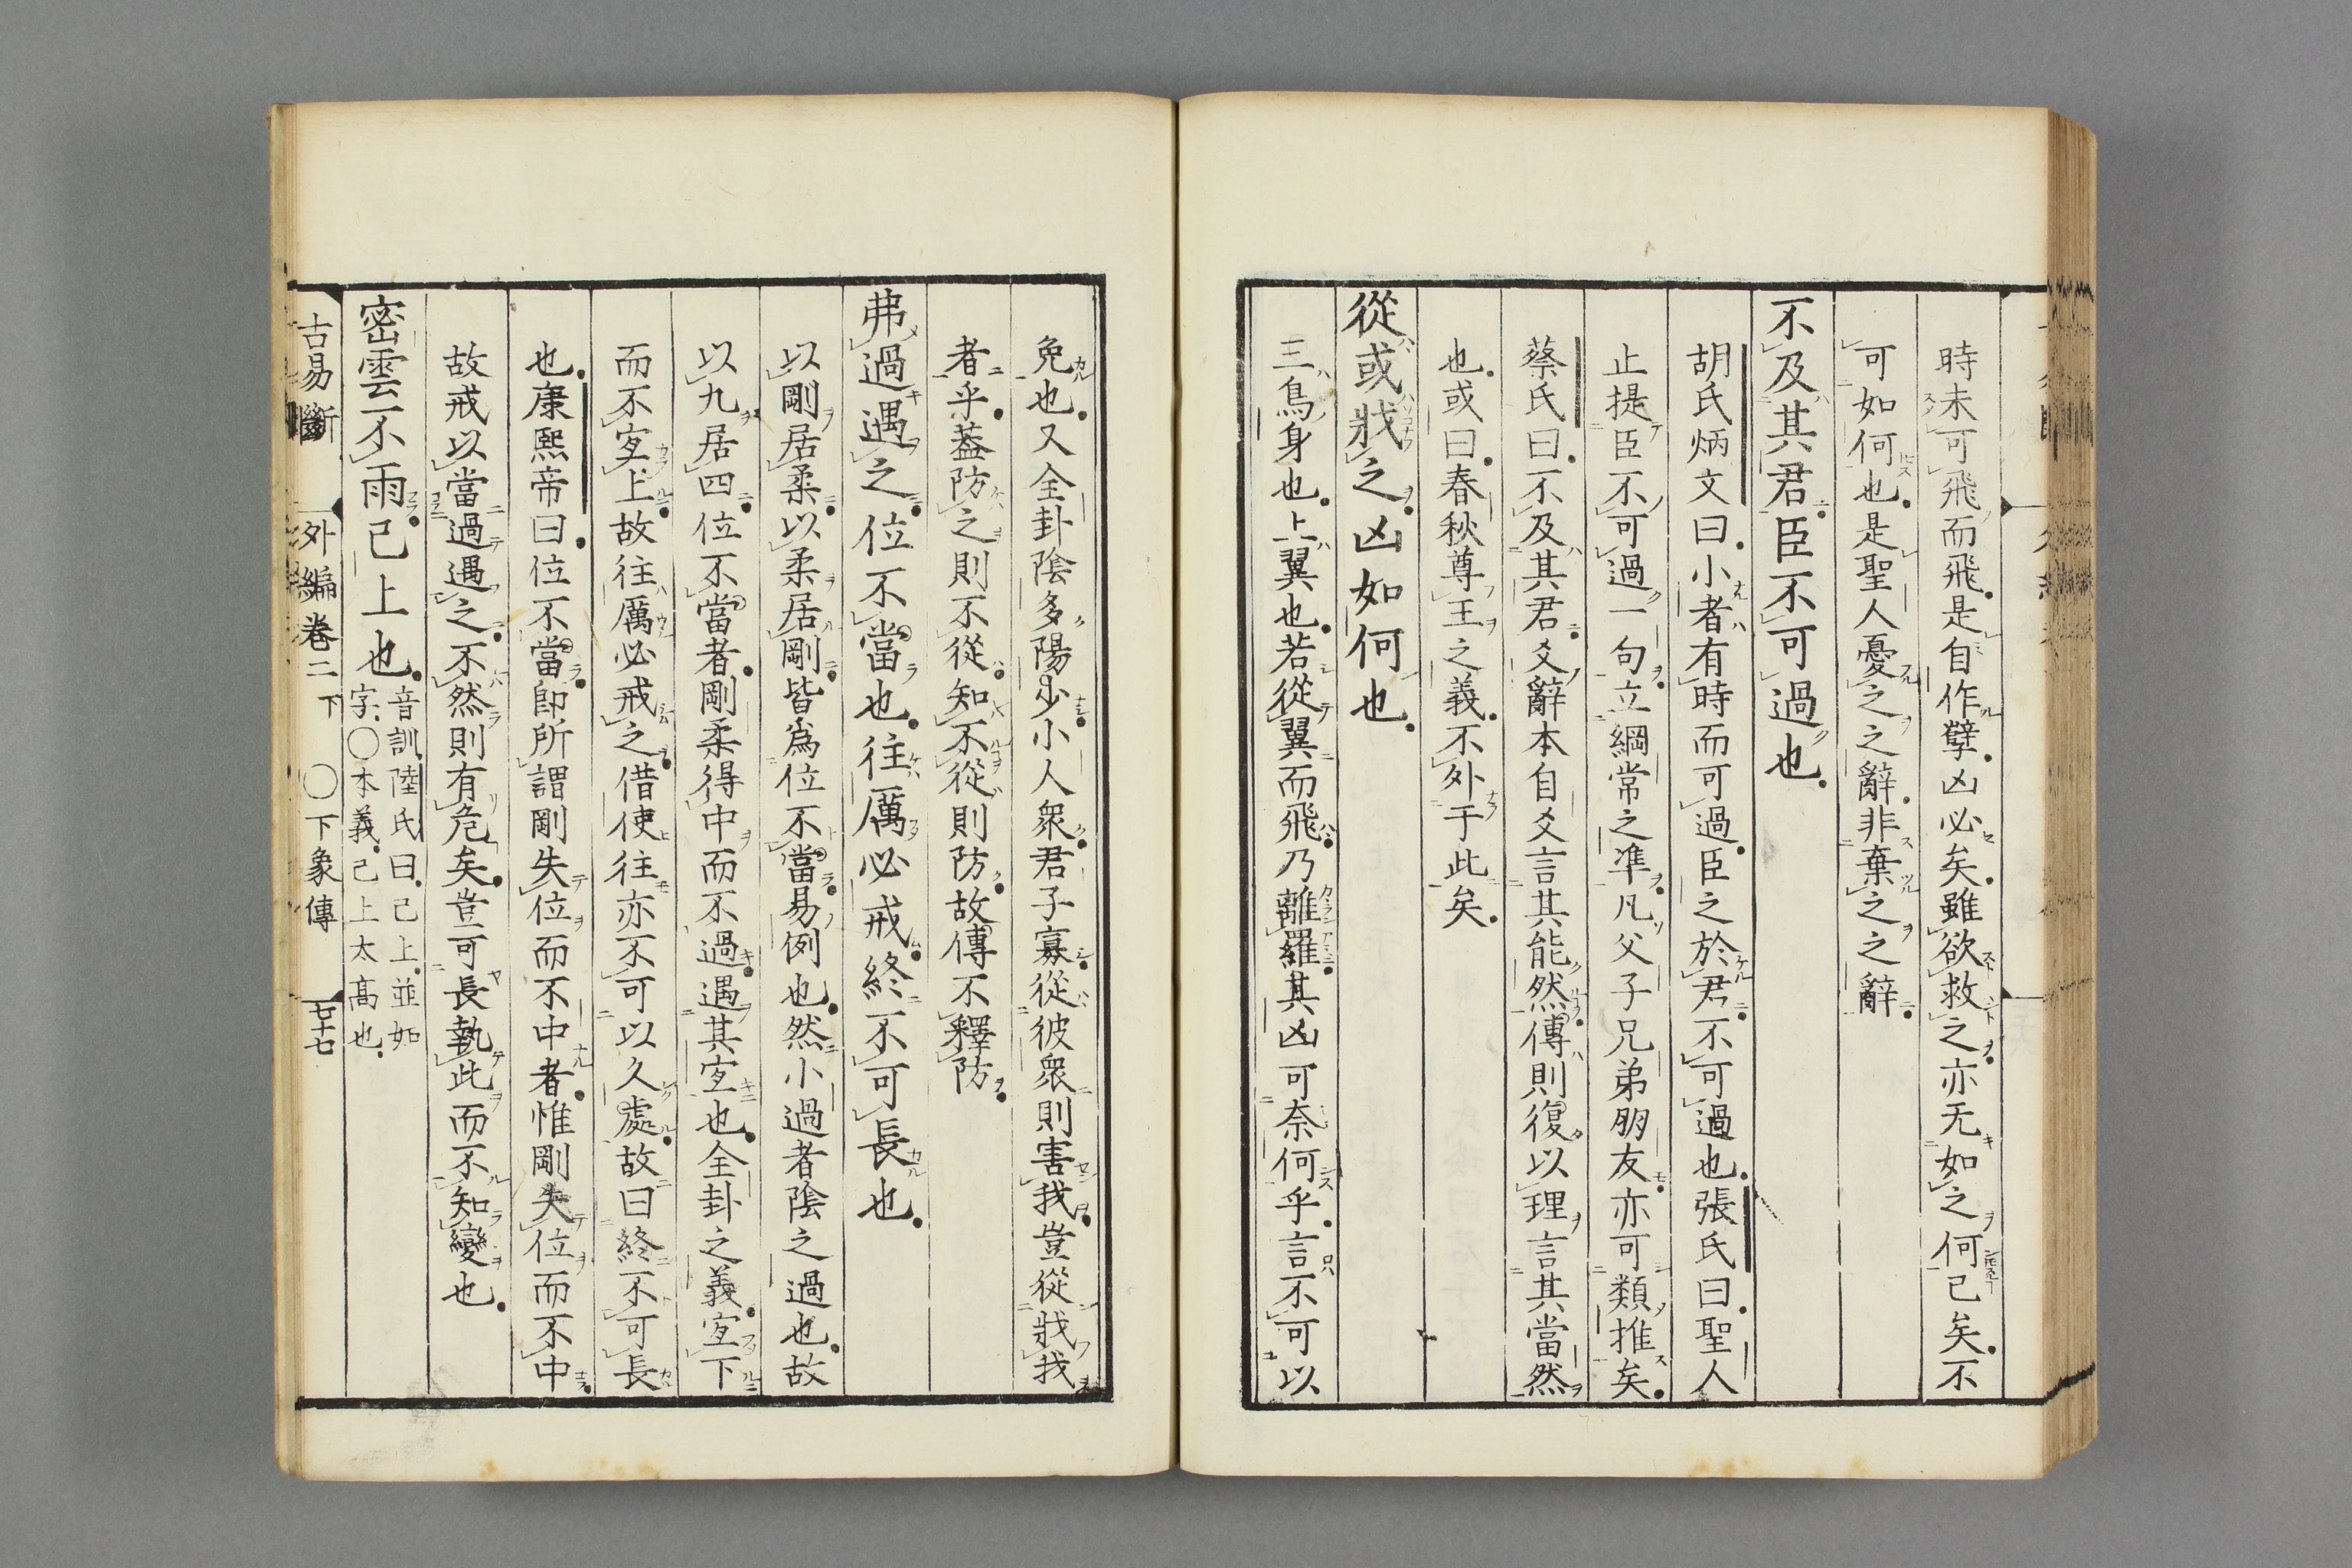 時未可飛而飛是自作孽凶必矣雖欲救之亦无如之何已矣不
可如何也是聖人憂之之辭非棄之之辭
不及其君臣不可過也
胡氏炳文曰小者有時而可過臣之於君不可過也張氏曰聖人
止提臣不可過一句立綱常之準凡父子兄弟朋友亦可類推矣
蔡氏曰不及其君爻辭本自爻言其能然傳則復以理言其當然
也或曰春秋尊王之義不外于此矣
從或戕之凶如何也
三鳥身也上翼也若從翼而飛乃離羅其凶可奈何乎言不可以
免也又全卦陰多陽少小人衆君子寡從彼衆則害我豈從戕我
者乎葢防之則不從知不從則防故傳不釋防
弗過遇之位不當也往厲必戒終不可長也
以剛居柔以柔居剛皆爲位不當易例也然小過者陰之過也故
以九居四位不當者剛柔得中而不過遇其宐也全卦之義宐下
而不宐上故往厲必戒之借使往亦不可以久處故曰終不可長
也康熙帝曰位不當卽所謂剛失位而不中者惟剛失位而不中
故戒以當過遇之不然則有危矣豈可長執此而不知變也
密雲不雨已上也
音訓陸氏曰已上並如
字〇本義已上太高也
古易斷 外編卷二下 〇下象傳 七十七